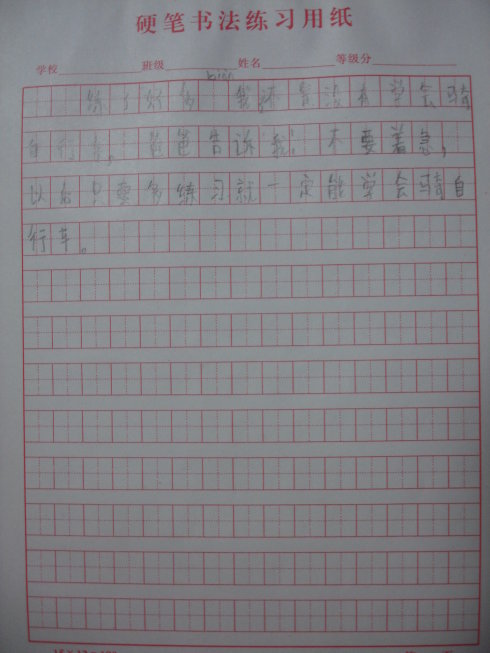 硬笔书法练习用纸
学校 班级 姓名 等级分
biàn
练了好多 我还是没有学会骑
自行车。爸爸告诉我：不要着急，
以后只要多练习就一定能学会骑自
行车。